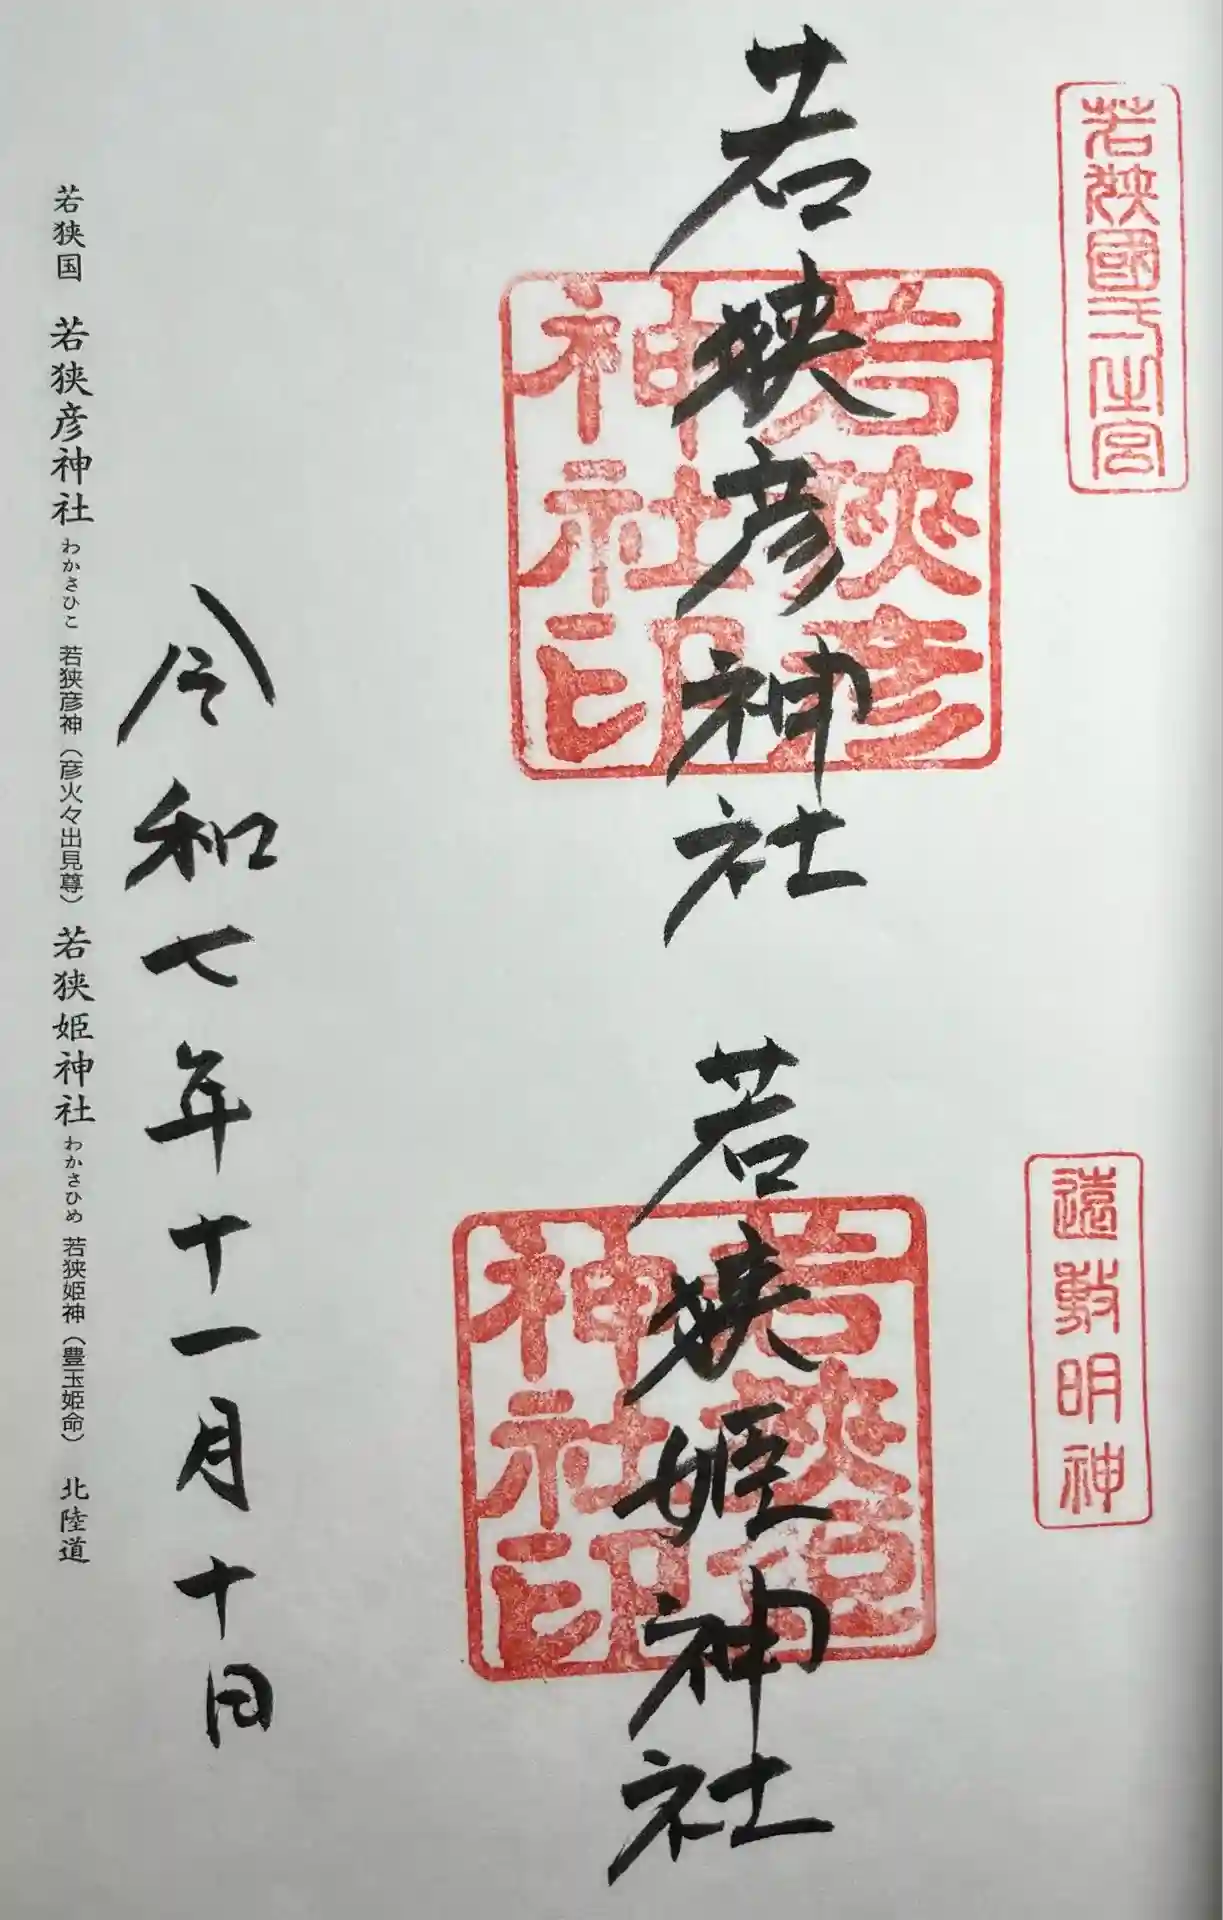 若狹國一之宮
遠敷明神
若狭彦神社
若狹彦
神社印
若狭姫神社
若狹姫
神社印
令和七年十一月十日
若狭国 若狭彦神社 わかさひこ 若狭彦神（彦火々出見尊） 若狭姫神社 わかさひめ 若狭姫神（豊玉姫命） 北陸道